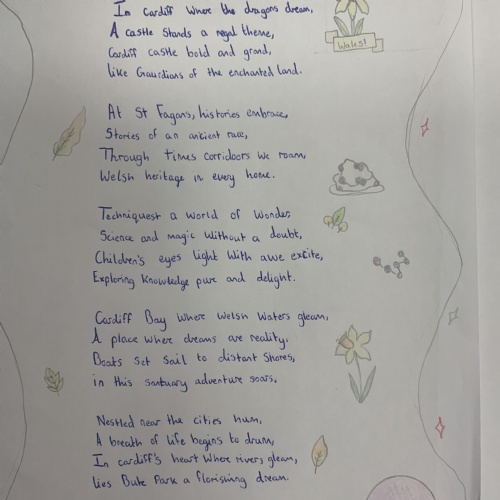 In Cardiff where the dragons dream,
A castle stands a regal theme,
Cardiff castle bold and grand,
like Gaurdians of the enchanted land.
Wales!
At St Fagans, histories embrace,
Stories of an ancient race,
Through times corridoors we roam,
Welsh heritage in every home.
Techniquest a world of wonder,
Science and magic without a doubt,
Children's eyes light with awe excite,
Exploring knowledge pure and delight.
Cardiff Bay where Welsh waters gleam,
A place where dreams are reality.
Boats set sail to distant shores,
in this santuary adventure soars.
Nestled near the cities hum,
A breath of life begins to drum,
In cardiff's heart where rivers gleam,
lies Bute Park a florishing dream.